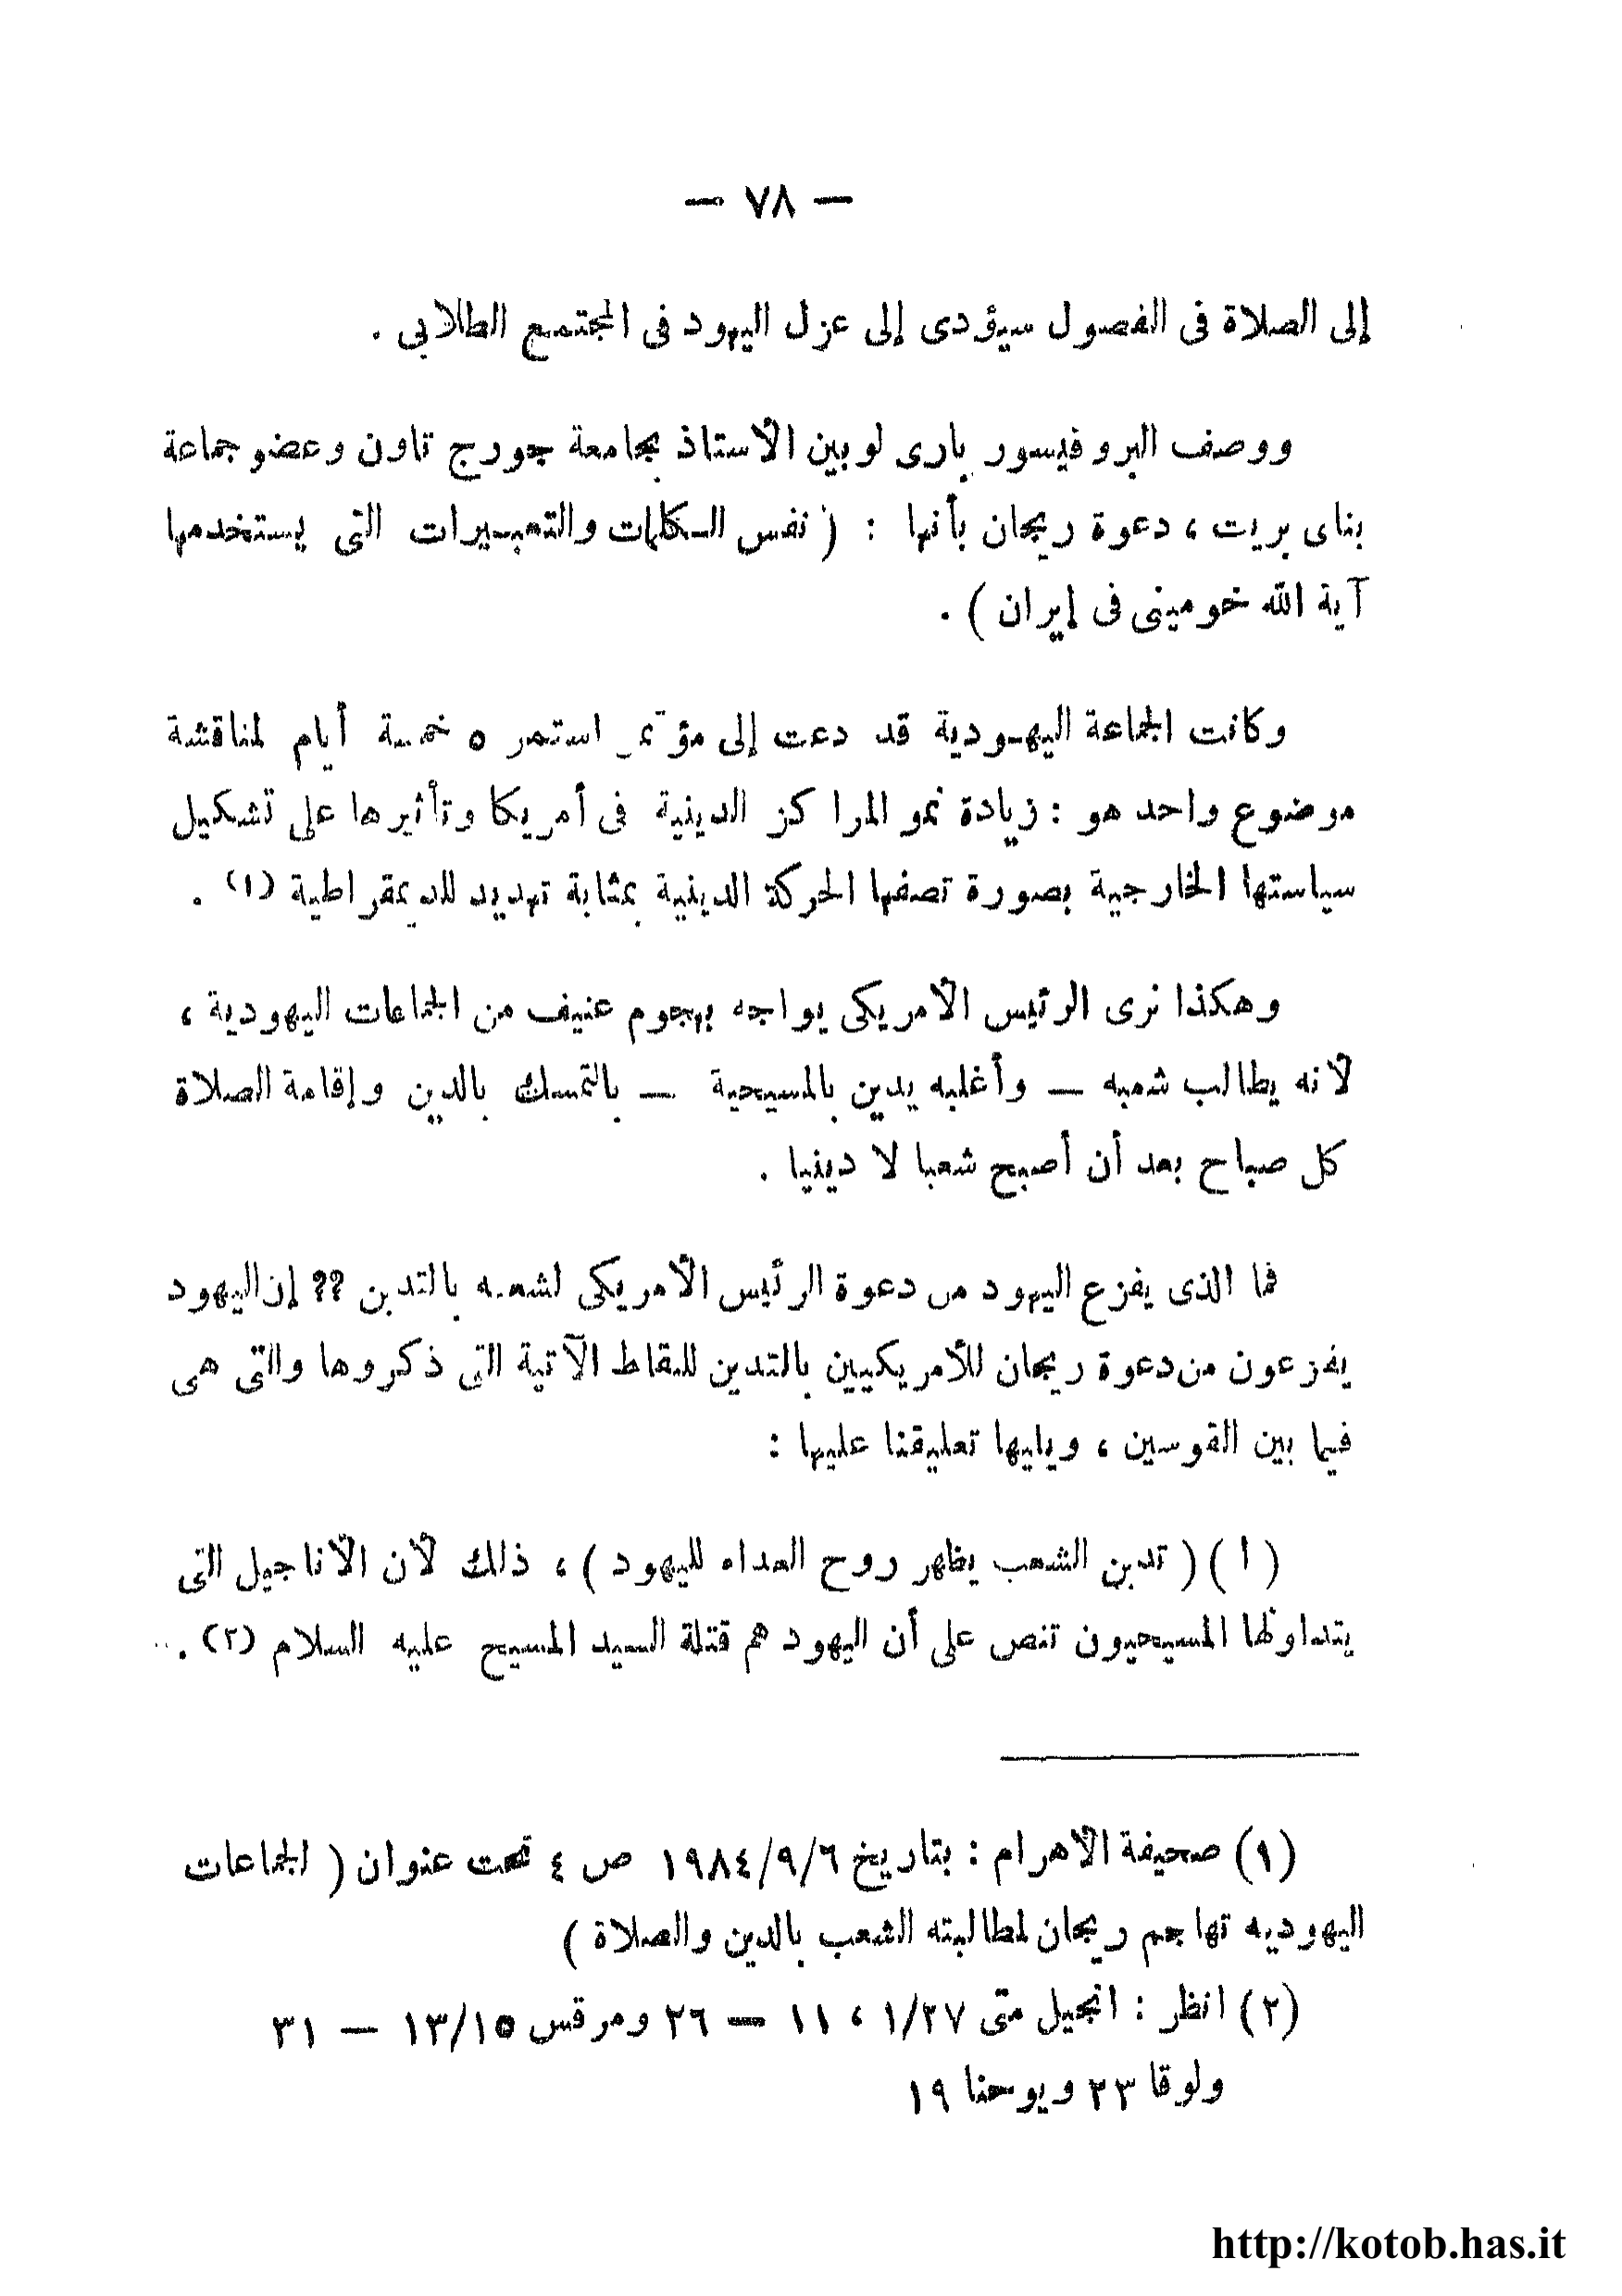 — ٧٨ —
إلى الصلاة فى الفصول سيؤدى إلى عزل اليهود فى المجتمع الطلابي .
ووصف البروفيسور بارى لوبين الأستاذ بجامعة جورج تاون وعضو جماعة
بناى بريت ، دعوة ريجان بأنها : ( نفس الكلمات والتعبيرات التى يستخدمها
آية الله خومينى فى إيران ) .
وكانت الجماعة اليهودية قد دعت إلى مؤتمر استمر ٥ خمسة أيام لمناقشة
موضوع واحد هو : زيادة نمو المراكز الدينية فى أمريكا وتأثيرها على تشكيل
سياستها الخارجية بصورة تصفها الحركة الدينية بمثابة تهديد للديمقراطية (١) .
وهكذا نرى الرئيس الأمريكى يواجه بهجوم عنيف من الجماعات اليهودية ،
لأنه يطالب شعبه — وأغلبه يدين بالمسيحية — بالتمسك بالدين وإقامة الصلاة
كل صباح بعد أن أصبح شعبا لا دينيا .
فما الذى يفزع اليهود من دعوة الرئيس الأمريكى لشعبه بالتدين ؟؟ إن اليهود
يفزعون من دعوة ريجان للأمريكيين بالتدين للنقاط الآتية التى ذكروها والتى هى
فيما بين القوسين ، ويليها تعليقنا عليها :
( ا ) ( تدين الشعب يظهر روح العداء لليهود ) ، ذلك لأن الأناجيل التى
يتداولها المسيحيون تنص على أن اليهود هم قتلة السيد المسيح عليه السلام (٢) .
(١) صحيفة الأهرام : بتاريخ ١٩٨٤/٩/٦ ص ٤ تحت عنوان ( الجماعات
اليهوديه تهاجم ريجان لمطالبته الشعب بالدين والصلاة )
(٢) انظر : انجيل متى ١/٢٧ ، ١١ — ٢٦ ومرقس ١٣/١٥ — ٣١
ولوقا ٢٣ ويوحنا ١٩
http://kotob.has.it